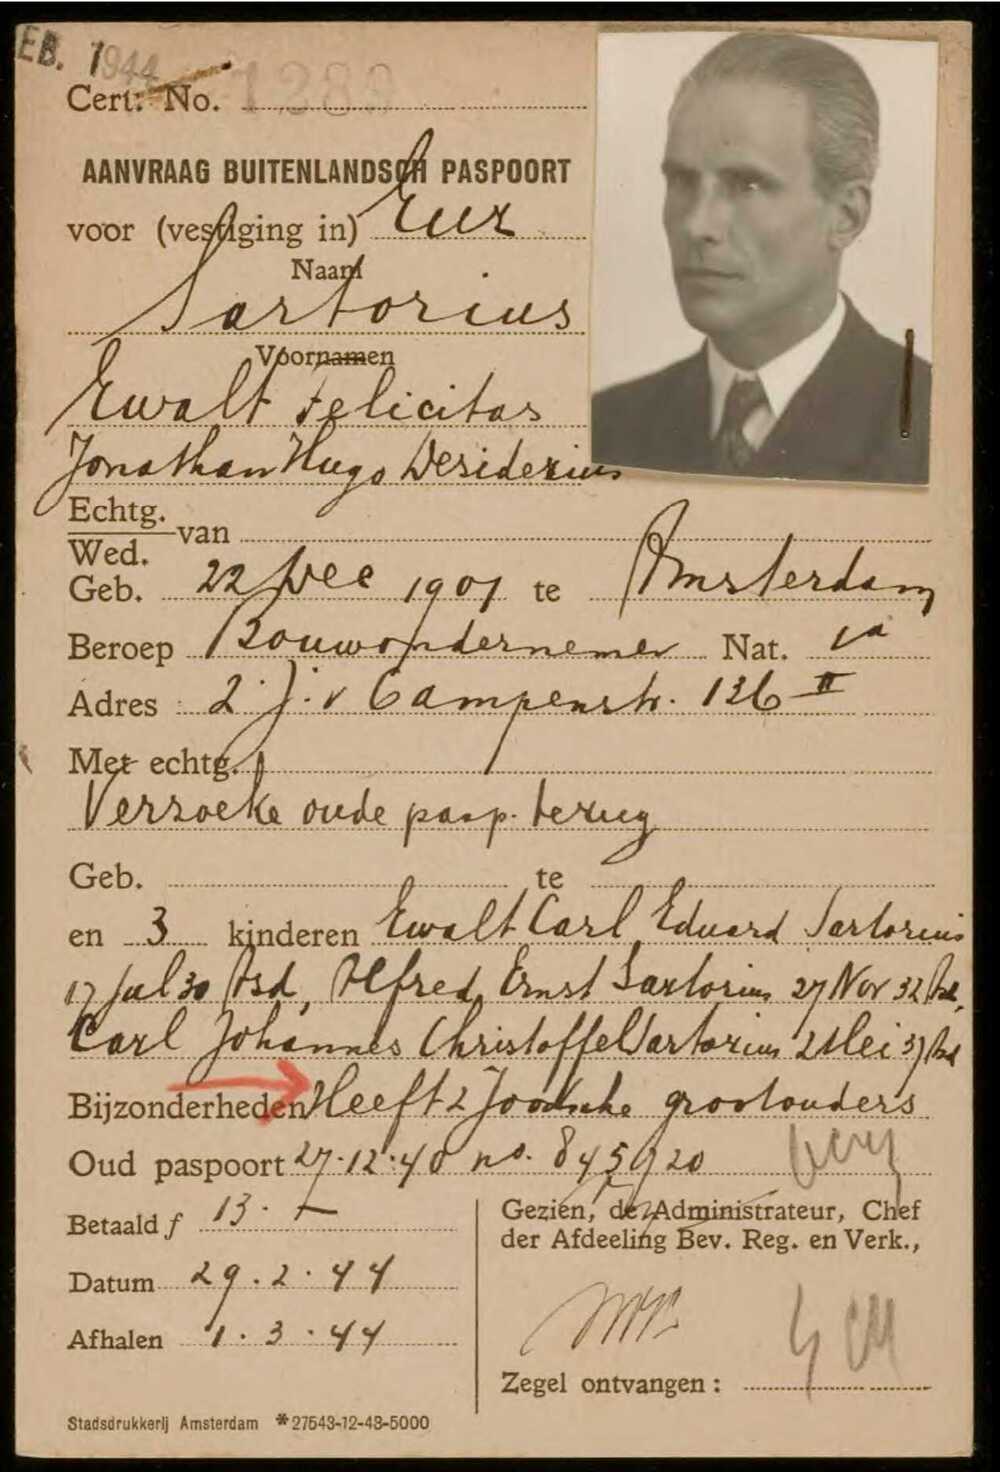 EB. 1944
Cert: No. 1289
AANVRAAG BUITENLANDSCH PASPOORT
voor (vestiging in) Eur
Naam
Sartorius
Voornamen
Ewalt Felicitas
Jonathan Hugo Desiderius
Echtg.
van
Wed.
Geb. 22 Dec 1901 te Amsterdam
Beroep Bouwondernemer Nat. ja
Adres 2 J. v Campenstr. 136 II
Met echtg.
Verzoeke oude pasp. terug
Geb. te
en 3 kinderen Ewalt Carl Eduard Sartorius
17 Jul 30 Asd, Alfred Ernst Sartorius 27 Nov 32 Asd,
Carl Johannes Christoffel Sartorius 2 Mei 37 Asd
Bijzonderheden Heeft 2 Joodsche grootouders
Oud paspoort 27.12.40 no. 845920
Betaald f 13.-
Gezien, de Administrateur, Chef
der Afdeeling Bev. Reg. en Verk.,
Datum 29.2.44
Afhalen 1.3.44
Zegel ontvangen:
Stadsdrukkerij Amsterdam *27543-12-43-5000